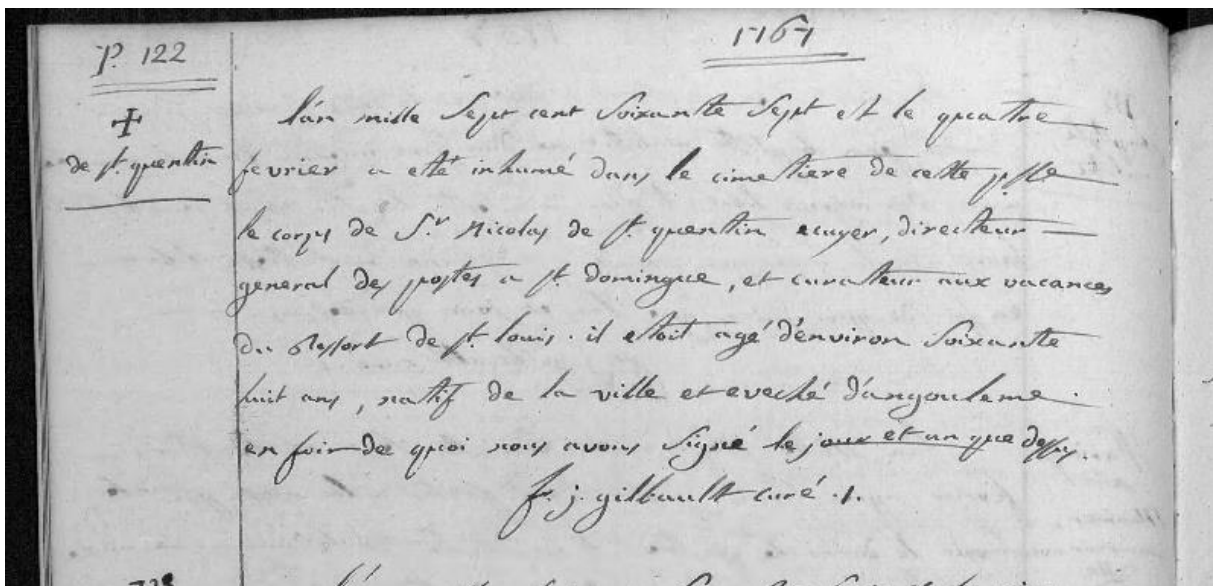 P. 122
1767
de st. quentin
l'an mille Sept cent Soixante Sept et le quattre
fevrier a eté inhumé dans le cimetiere de cette psse
le corps de Sr. Nicolas de st. quentin ecuyer, directeur
general des postes a st. domingue, et curateur aux vacances
du Ressort de st. louis. il etoit agé d'environ Soixante
huit ans, natif de la ville et eveché d'angouleme.
en foir de quoi nous avons Signé le jour et an que dessus.
fr. j. gilbault curé .1.